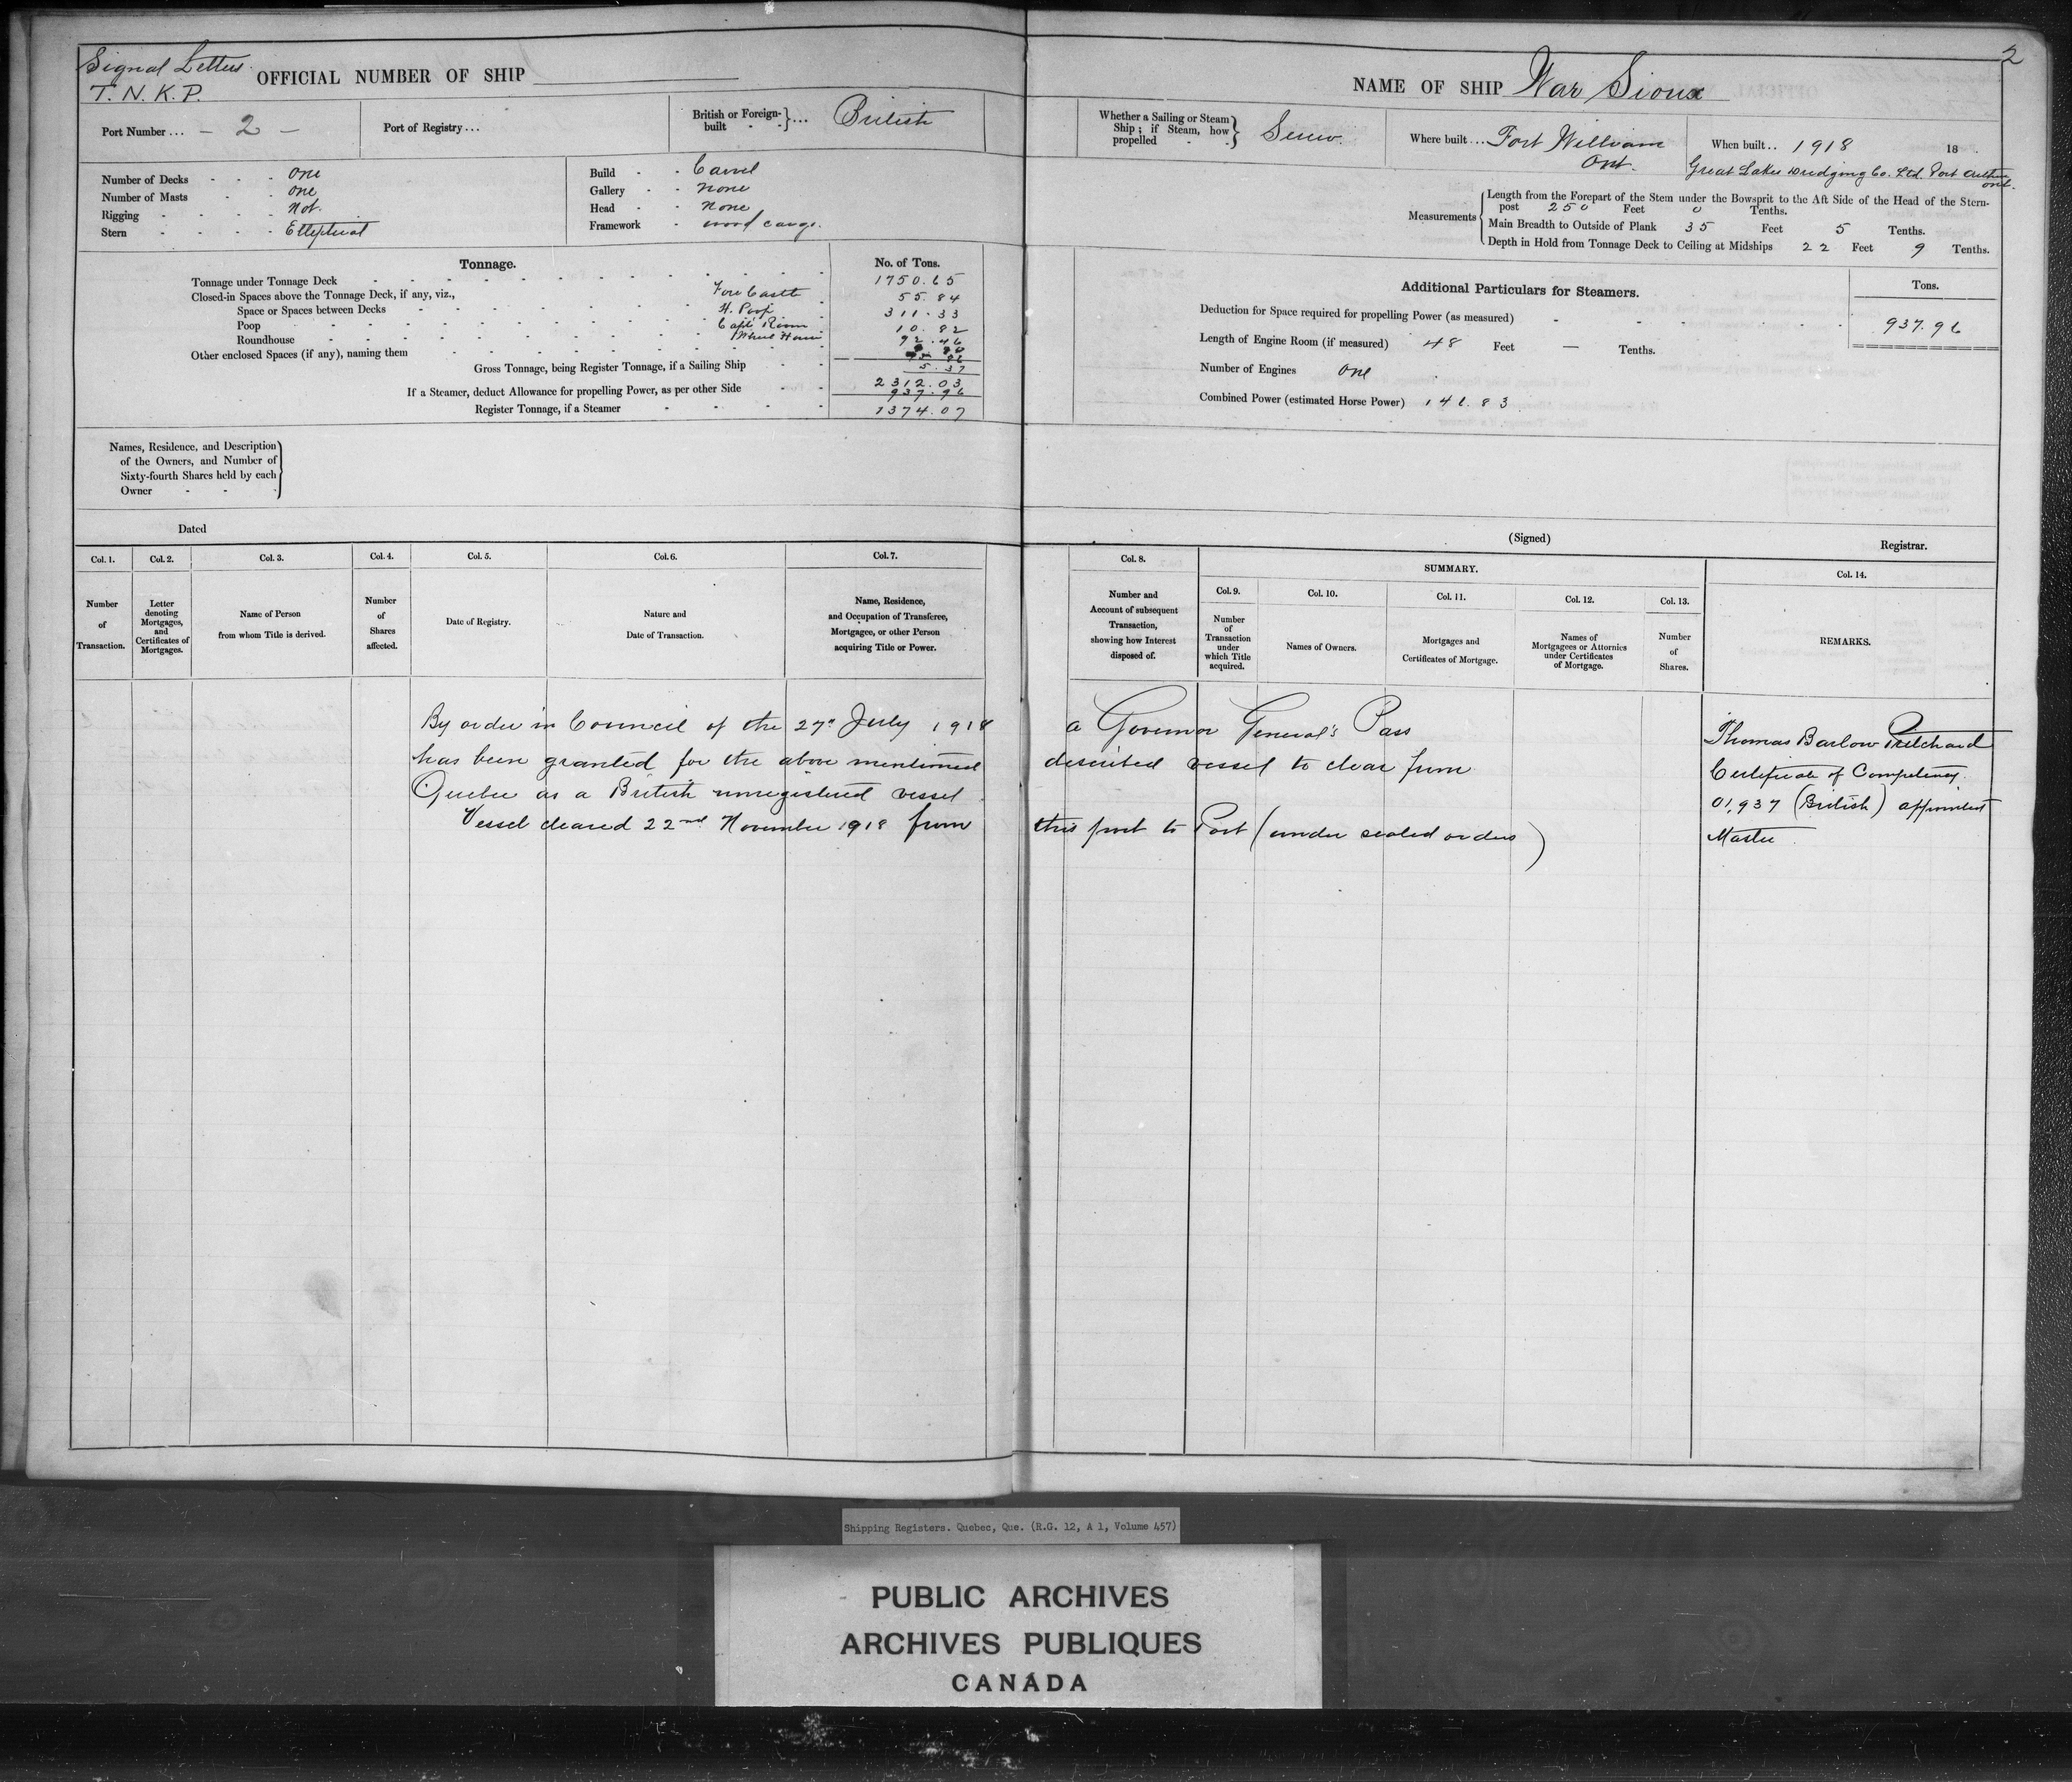 Signal Letters
T. N. K. P.
OFFICIAL NUMBER OF SHIP
Port Number ... - 2 -
Port of Registry ...
British or Foreign-built } ... British
Number of Decks - - - One
Number of Masts - - One
Rigging - - - - Not
Stern - - - - Elliptical
Build - - Carvel
Gallery - - None
Head - - None
Framework - wood cargo.
Tonnage.
No. of Tons.
Tonnage under Tonnage Deck 1750.65
Closed-in Spaces above the Tonnage Deck, if any, viz., Fore Castle 55.84
Space or Spaces between Decks 311.33
Poop Capt Room 10.82
Roundhouse Wheel House 92.46
Other enclosed Spaces (if any), naming them
5.37
Gross Tonnage, being Register Tonnage, if a Sailing Ship
2312.03
If a Steamer, deduct Allowance for propelling Power, as per other Side 937.96
Register Tonnage, if a Steamer 1374.07
Names, Residence, and Description of the Owners, and Number of Sixty-fourth Shares held by each Owner
Dated
Col. 1. Col. 2. Col. 3. Col. 4. Col. 5. Col. 6. Col. 7.
Number of Transaction.
Letter denoting Mortgages, and Certificates of Mortgages.
Name of Person from whom Title is derived.
Number of Shares affected.
Date of Registry.
Nature and Date of Transaction.
Name, Residence, and Occupation of Transferee, Mortgagee, or other Person acquiring Title or Power.
2
NAME OF SHIP War Sioux
Whether a Sailing or Steam Ship; if Steam, how propelled } Screw.
Where built ... Fort William Ont.
When built .. 1918 18 .
Great Lakes Dredging Co. Ltd. Port Arthur Ont.
Measurements
Length from the Forepart of the Stem under the Bowsprit to the Aft Side of the Head of the Stern-post 250 Feet 0 Tenths.
Main Breadth to Outside of Plank 35 Feet 5 Tenths.
Depth in Hold from Tonnage Deck to Ceiling at Midships 22 Feet 9 Tenths.
Additional Particulars for Steamers.
Tons.
Deduction for Space required for propelling Power (as measured) 937.96
Length of Engine Room (if measured) 48 Feet — Tenths.
Number of Engines One
Combined Power (estimated Horse Power)
(Signed)
Registrar.
Col. 8.
SUMMARY.
Col. 14.
Number and Account of subsequent Transaction, showing how Interest disposed of.
Col. 9. Col. 10. Col. 11. Col. 12. Col. 13.
Number of Transaction under which Title acquired.
Names of Owners.
Mortgages and Certificates of Mortgage.
Names of Mortgagees or Attornies under Certificates of Mortgage.
Number of Shares.
REMARKS.
By order in Council of the 27th July 1918 a Governor General's Pass
has been granted for the above mentioned described vessel to clear from
Quebec as a British unregistered vessel
Vessel cleared 22nd November 1918 from this port to Port (under sealed orders)
Thomas Barlow Pritchard
Certificate of Competency
01,937 (British) appointed
Master
Shipping Registers. Quebec, Que. (R.G. 12, A 1, Volume 457)
PUBLIC ARCHIVES
ARCHIVES PUBLIQUES
CANADA